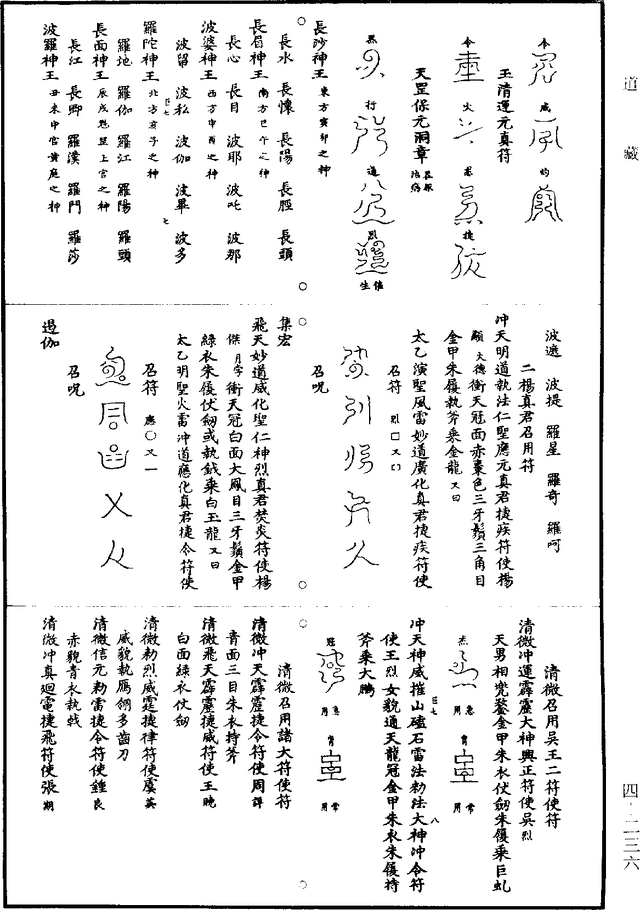 道藏
玉清運元真符
天罡保元洞章
長沙神王 東方寅卯之神
長水 長懷 長陽 長脛 長頭
長眉神王 南方巳午之神
長心 長目 波耶 波吒 波那
波婆神王 西方申酉之神
波留 波私 波伽 波畢 波多
羅陀神王 北方亥子之神
羅地 羅伽 羅江 羅陽 羅頭
長面神王 辰戌魁罡上宮之神
長江 長卿 羅漢 羅門 羅莎
波羅神王 丑未中宮黄庭之神
波遮 波提 羅星 羅奇 羅呵
二楊真君召用符
冲天明道執法仁聖應元真君捷疾符使楊
顯 文德衝天冠面赤棗色三牙鬚三角目
金甲朱履執斧乘金龍 又曰
太乙演聖風雷妙道廣化真君捷疾符使
召符
召呪
集宏
飛天妙道威化聖仁神烈真君焚炎符使楊
傑 衝天冠白面大鳳目三牙鬚金甲
綠衣朱履仗劒或執鉞乘白玉龍 又曰
太乙明聖火雷冲道應化真君捷令符使
召符
召呪
遏伽
清微召用吴王二符使符
清微冲運霹靂大神興正符使吴烈
天男相兜鍪金甲朱衣仗劒朱履乘巨虬
冲天神威摧山磕石雷法勑法大神冲令符
使王烈 女貌通天龍冠金甲朱衣朱履持
斧乘大鵬
清微召用諸大符使符
清微冲天霹靂捷令符使周
青面三目朱衣持斧
清微飛天霹靂捷威符使王曉
白面綠衣仗劒
清微勑烈威霆捷律符使虞英
威貌執鴈翎多齒刀
清微信元勑雷捷令符使鍾良
赤貌青衣執戟
清微冲真廻電捷飛符使張期
四·二三六